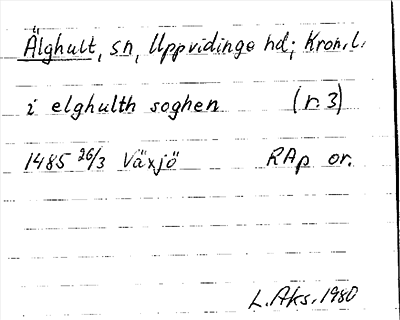 Älghult, sn, Uppvidinge hd; Kron.l.
i elghulth soghen (r. 3)
1485 26/3 Växjö RAp or.
L. Aks. 1980